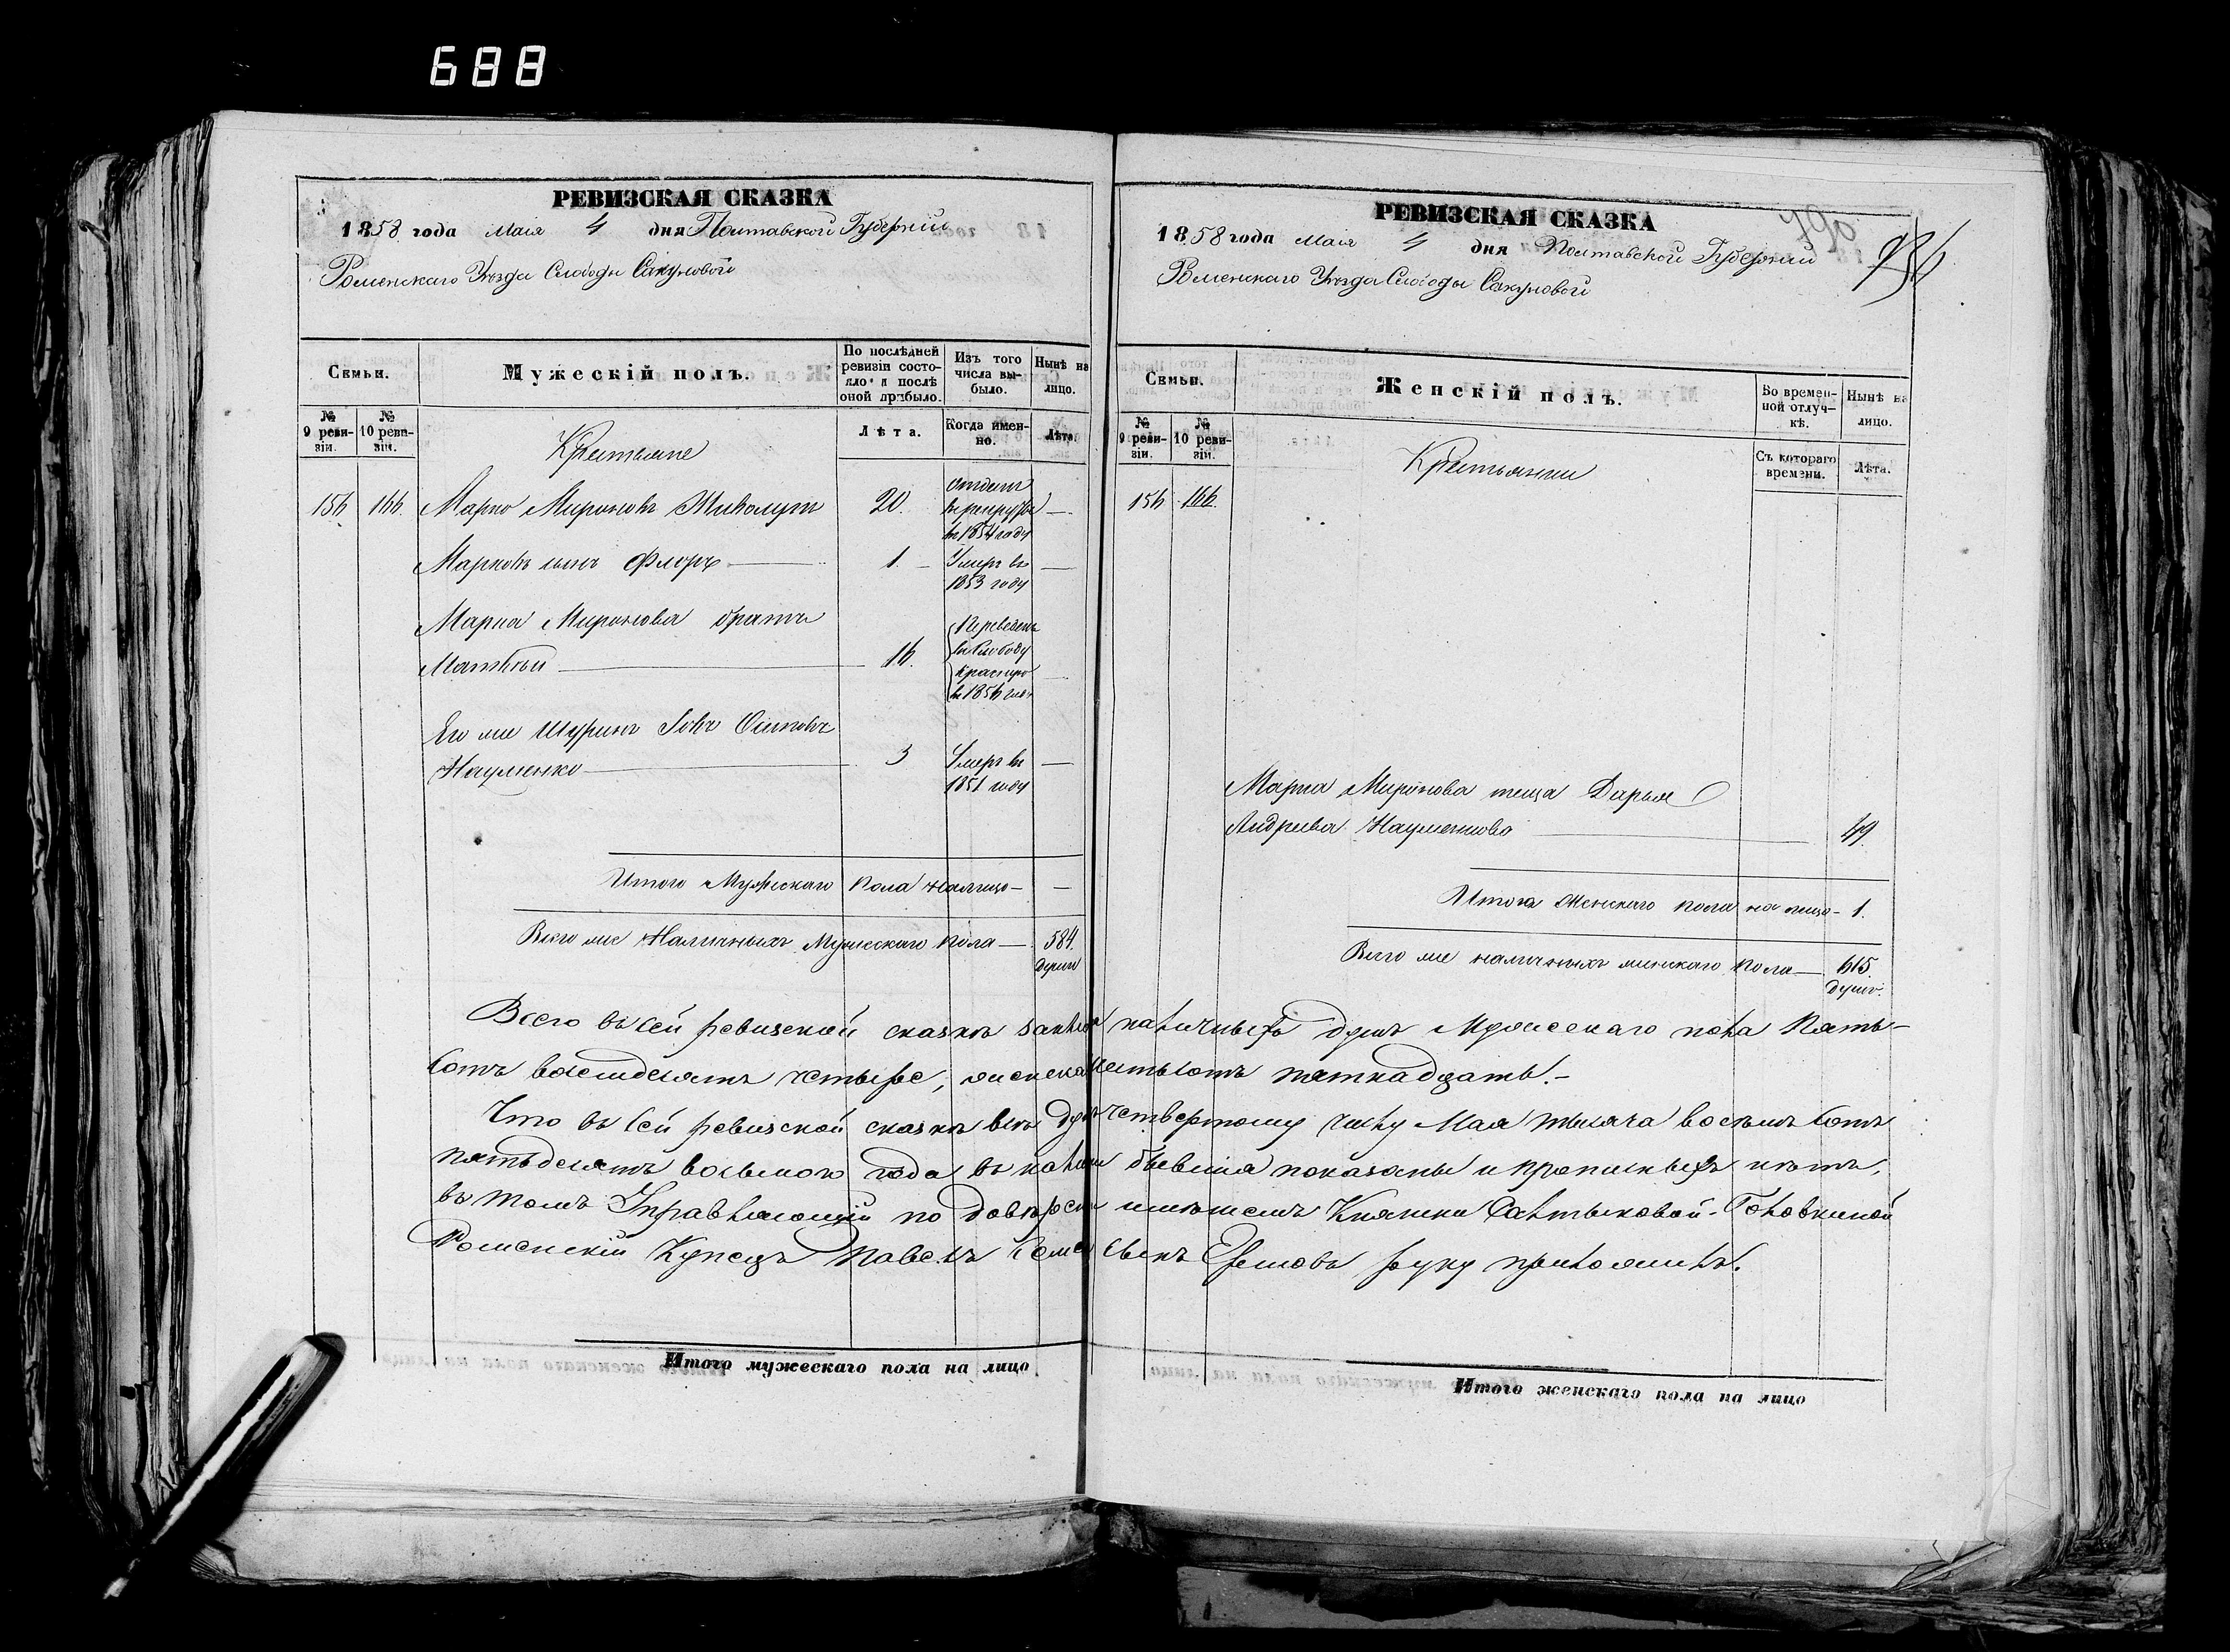 688
РЕВИЗСКАЯ СКАЗКА
1858 года Маія 4 дня Полтавской Губерніи
Роменскаго Уѣзда Слободы Сакуновой
Семьи.
Мужескій полъ.
По послѣдней ревизіи состояло и послѣ оной прибыло.
Изъ того числа выбыло.
Нынѣ на лицо.
№ 9 ревизіи.
№ 10 ревизіи.
Лѣта.
Когда именно.
Лѣта.
Крестьяне
156 166 Марко Мироновъ 20. отданъ въ рекруты въ 1854 году —
Марковъ сынъ Флоръ 1. Умеръ въ 1853 году —
Марка Миронова братъ
Матвѣй 16. Переведенъ въ Слободу въ 1856 году —
Его же Шуринъ Іовъ Осиповъ
Науменко 3 Умеръ въ 1851 году —
Итого Мужескаго пола налицо — —
Всего же Наличныхъ Мужескаго пола — 584. душъ
РЕВИЗСКАЯ СКАЗКА
1858 года Маія 4 дня Полтавской Губерніи
Роменскаго Уѣзда Слободы Сакуновой
Семьи.
Женскій полъ.
Во временной отлучкѣ.
Нынѣ на лицо.
№ 9 ревизіи.
№ 10 ревизіи.
Съ котораго времени.
Лѣта.
Крестьянки
156 166.
Марка Миронова теща Дарья
Андреева Науменкова 49.
Итого Женскаго пола на лицо — 1.
Всего же наличныхъ женскаго пола — 615. душъ.
Всего въ сей ревизской сказкѣ наличныхъ душъ Мужескаго пола Пять-
сотъ восемдесятъ четыре, шестьсотъ пятнадцать.-
Что въ сей ревизской сказкѣ всѣ душ четвертому числу Мая тысяча восемь сотъ
пятьдесятъ восьмого года въ бывшія показаны и прописныхъ нѣтъ,
въ томъ Управляющій по имѣніемъ Княжны Салтыковой-Головкиной
Роменскій Купецъ Павелъ сынъ руку приложилъ.
Итого мужескаго пола на лицо
Итого женскаго пола на лицо